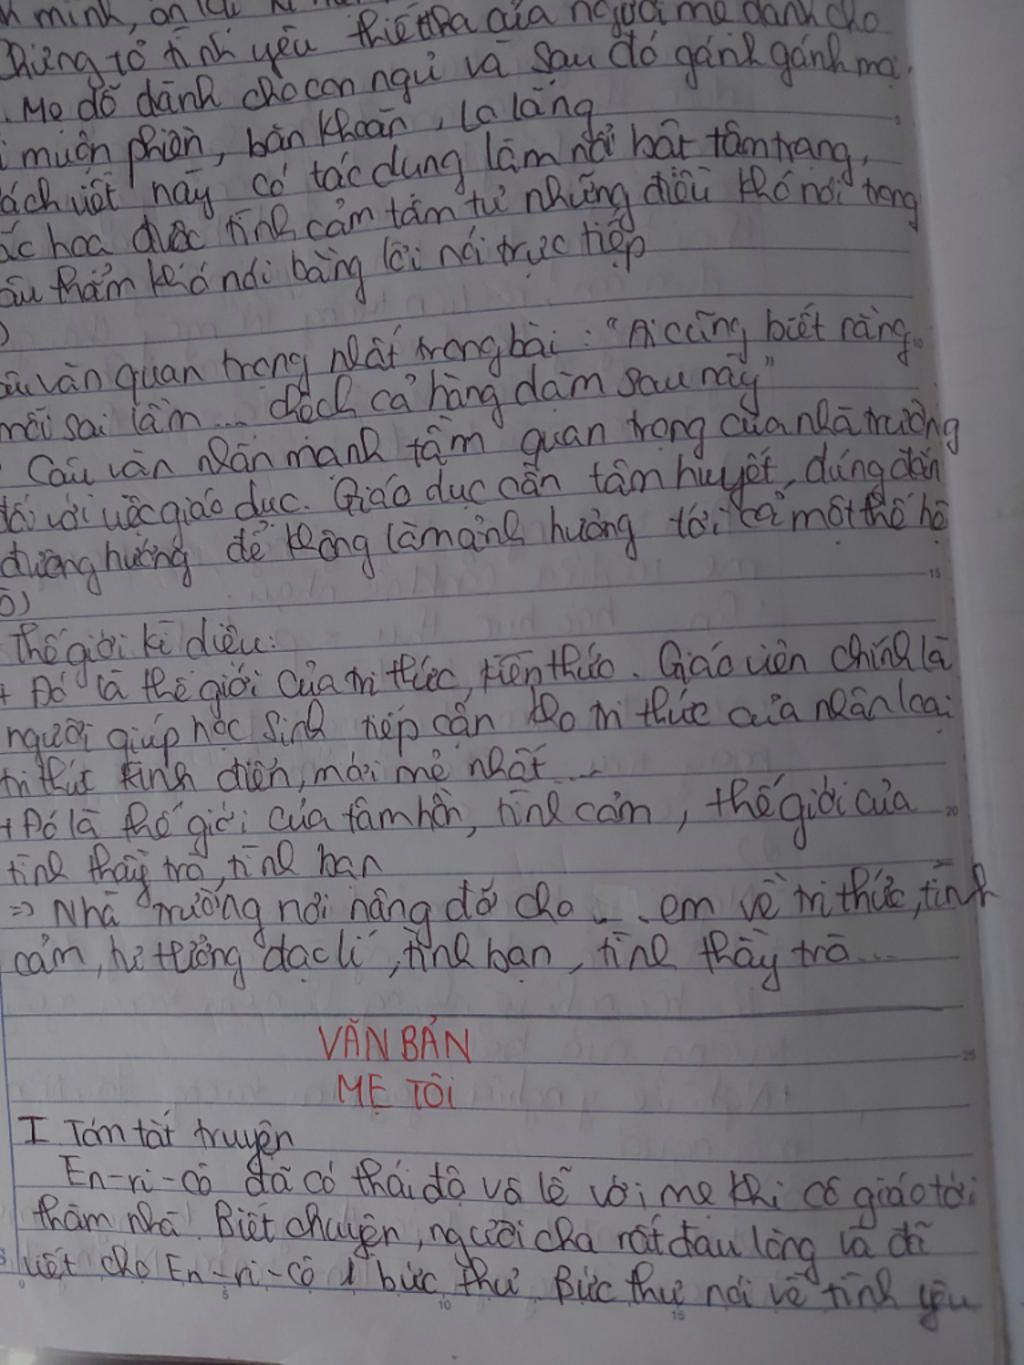 minh, ôn lại kỉ
Chứng tỏ tình yêu thiết tha của người mẹ dành cho
. Mẹ đỗ dành cho con ngủ và sau đó gánh gánh mà
muộn phiền, băn khoăn, lo lắng
ách viết này có tác dụng làm nổi bật tâm trạng,
ắc hoạ được tình cảm tâm tư những điều khó nói trong
âu thẩm khó nói bằng lời nói trực tiếp
)
âu văn quan trọng nhất trong bài: "Ai cũng biết rằng
mỗi sai lầm ... chệch cả hàng dặm sau này"
Câu văn nhấn mạnh tầm quan trọng của nhà trường
đối với việc giáo dục. Giáo dục cần tâm huyết, đúng đắn
đường hướng để không làm ảnh hưởng tới cả một thế hệ
ô)
Thế giới kì diệu:
+ Đó là thế giới của tri thức, kiến thức. Giáo viên chính là
người giúp học sinh tiếp cận kho tri thức của nhân loại
tri thức kinh điển, mới mẻ nhất ...
+ Đó là thế giới của tâm hồn, tình cảm, thế giới của
tình thầy trò, tình bạn
=> Nhà trường nơi nâng đỡ cho ... em về tri thức, tình
cảm, tư tưởng đạo lí, tình bạn, tình thầy trò...
VĂN BẢN
MẸ TÔI
I Tóm tắt truyện
En-ri-cô đã có thái độ vô lễ với mẹ khi cô giáo tới
thăm nhà. Biết chuyện, người cha rất đau lòng và đã
viết cho En-ri-cô 1 bức thư. Bức thư nói về tình yêu